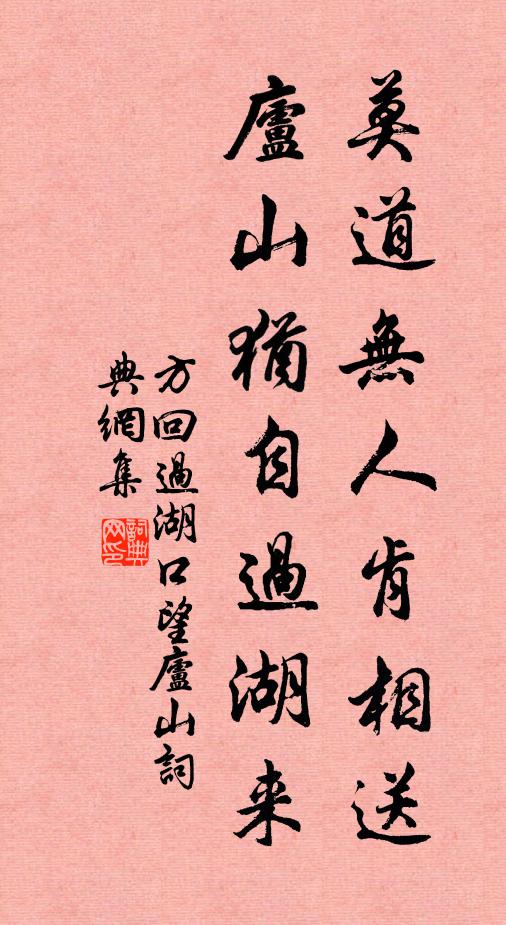 莫道無人肯相送
廬山猶自過湖来
方回過湖口望廬山詞
典網集
詞典網印